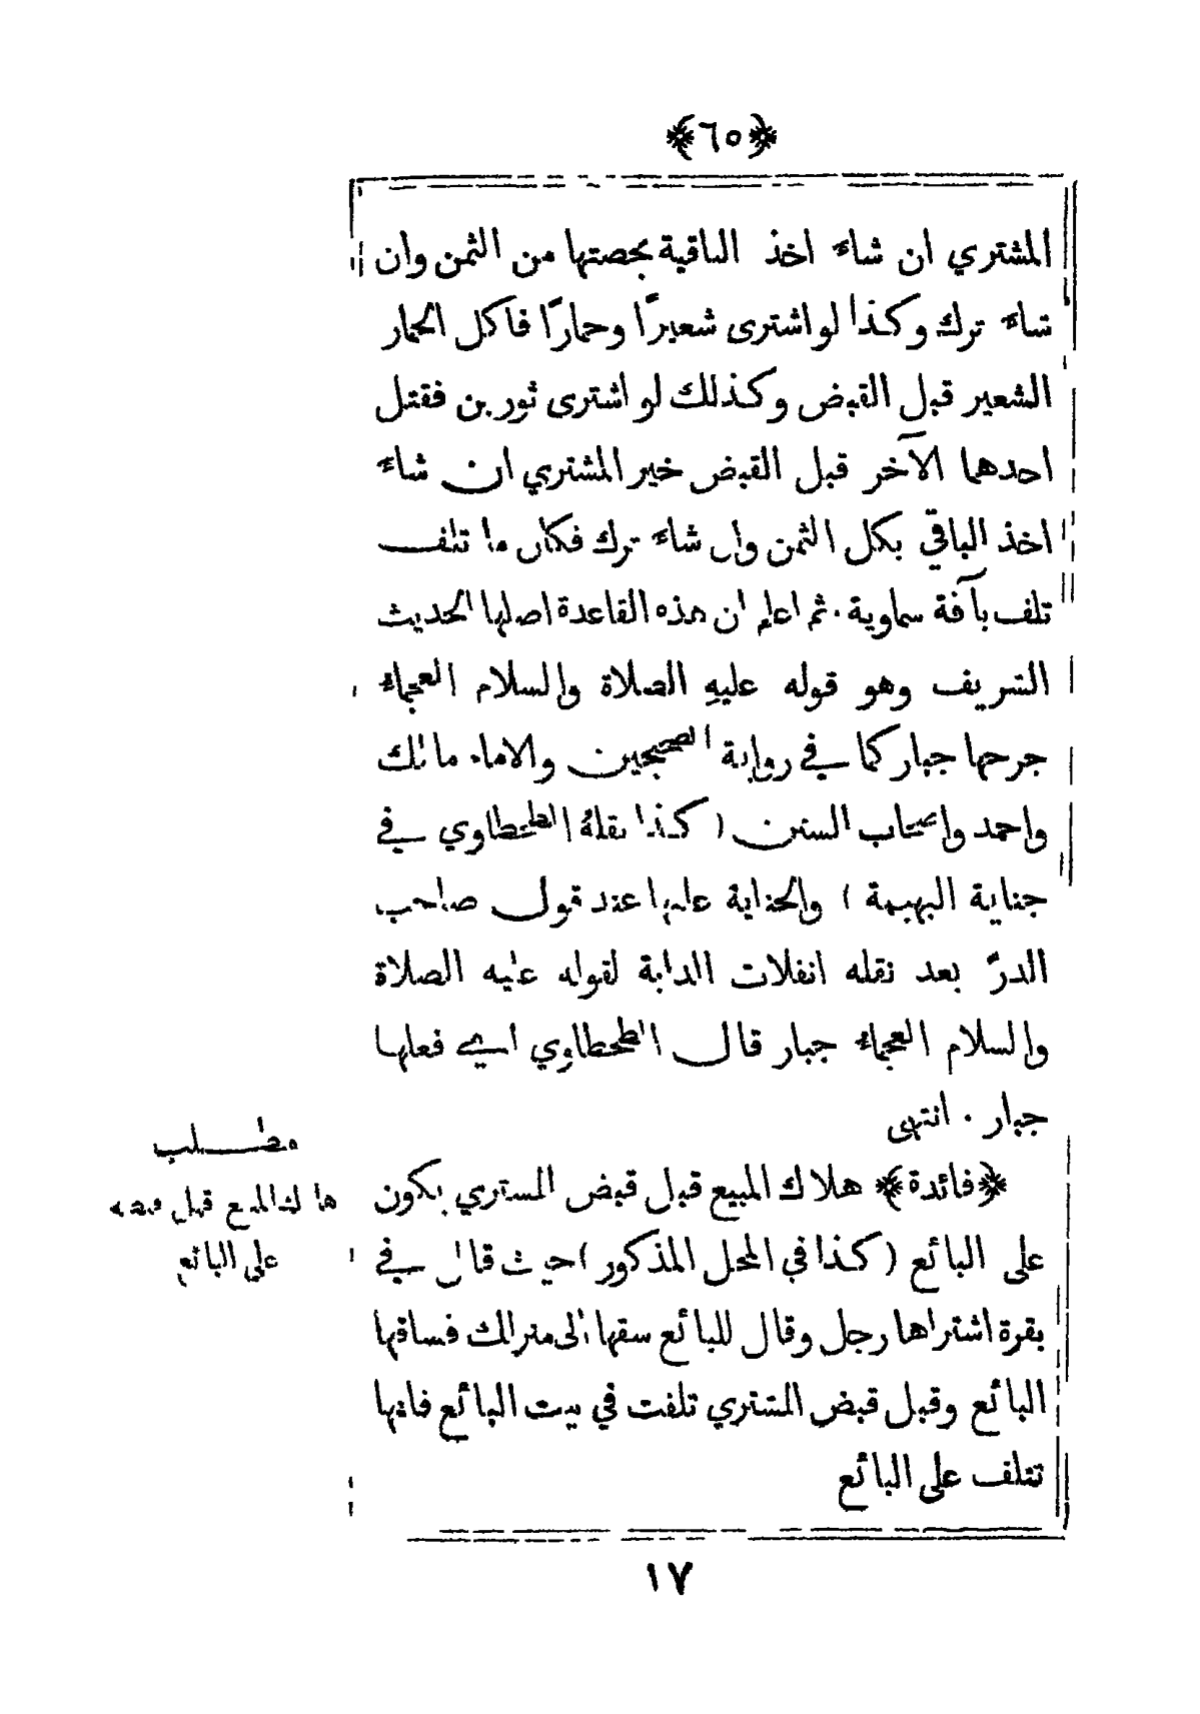 ﴿٦٥﴾
المشتري ان شاء اخذ الباقية بحصتها من الثمن وان
شاء ترك وكذا لو اشترى شعيرًا وحمارًا فاكل الحمار
الشعير قبل القبض وكذلك لو اشترى ثورين فقتل
احدهما الآخر قبل القبض خير المشتري ان شاء
اخذ الباقي بكل الثمن وان شاء ترك فكان ما تلف
تلف بآفة سماوية . ثم اعلم ان هذه القاعدة اصلها الحديث
الشريف وهو قوله عليهِ الصلاة والسلام العجماء
جرحها جبار كما في رواية الصحيحين والامام مالك
واحمد واصحاب السنن ( كذا نقلهُ الطحطاوي في
جناية البهيمة ) والجناية عليها عند قول صاحب
الدرّ بعد نقله انفلات الدابة لقوله عليه الصلاة
والسلام العجماء جبار قال الطحطاوي اي فعلها
جبار . انتهى
﴿فائدة﴾ هلاك المبيع قبل قبض المشتري يكون
على البائع ( كذا في المحل المذكور ) حيث قال في
بقرة اشتراها رجل وقال للبائع سقها الى منزلك فساقها
البائع وقبل قبض المشتري تلفت في بيت البائع فانها
تتلف على البائع
مطلب
هلاك المبيع قبل قبضه
على البائع
١٧